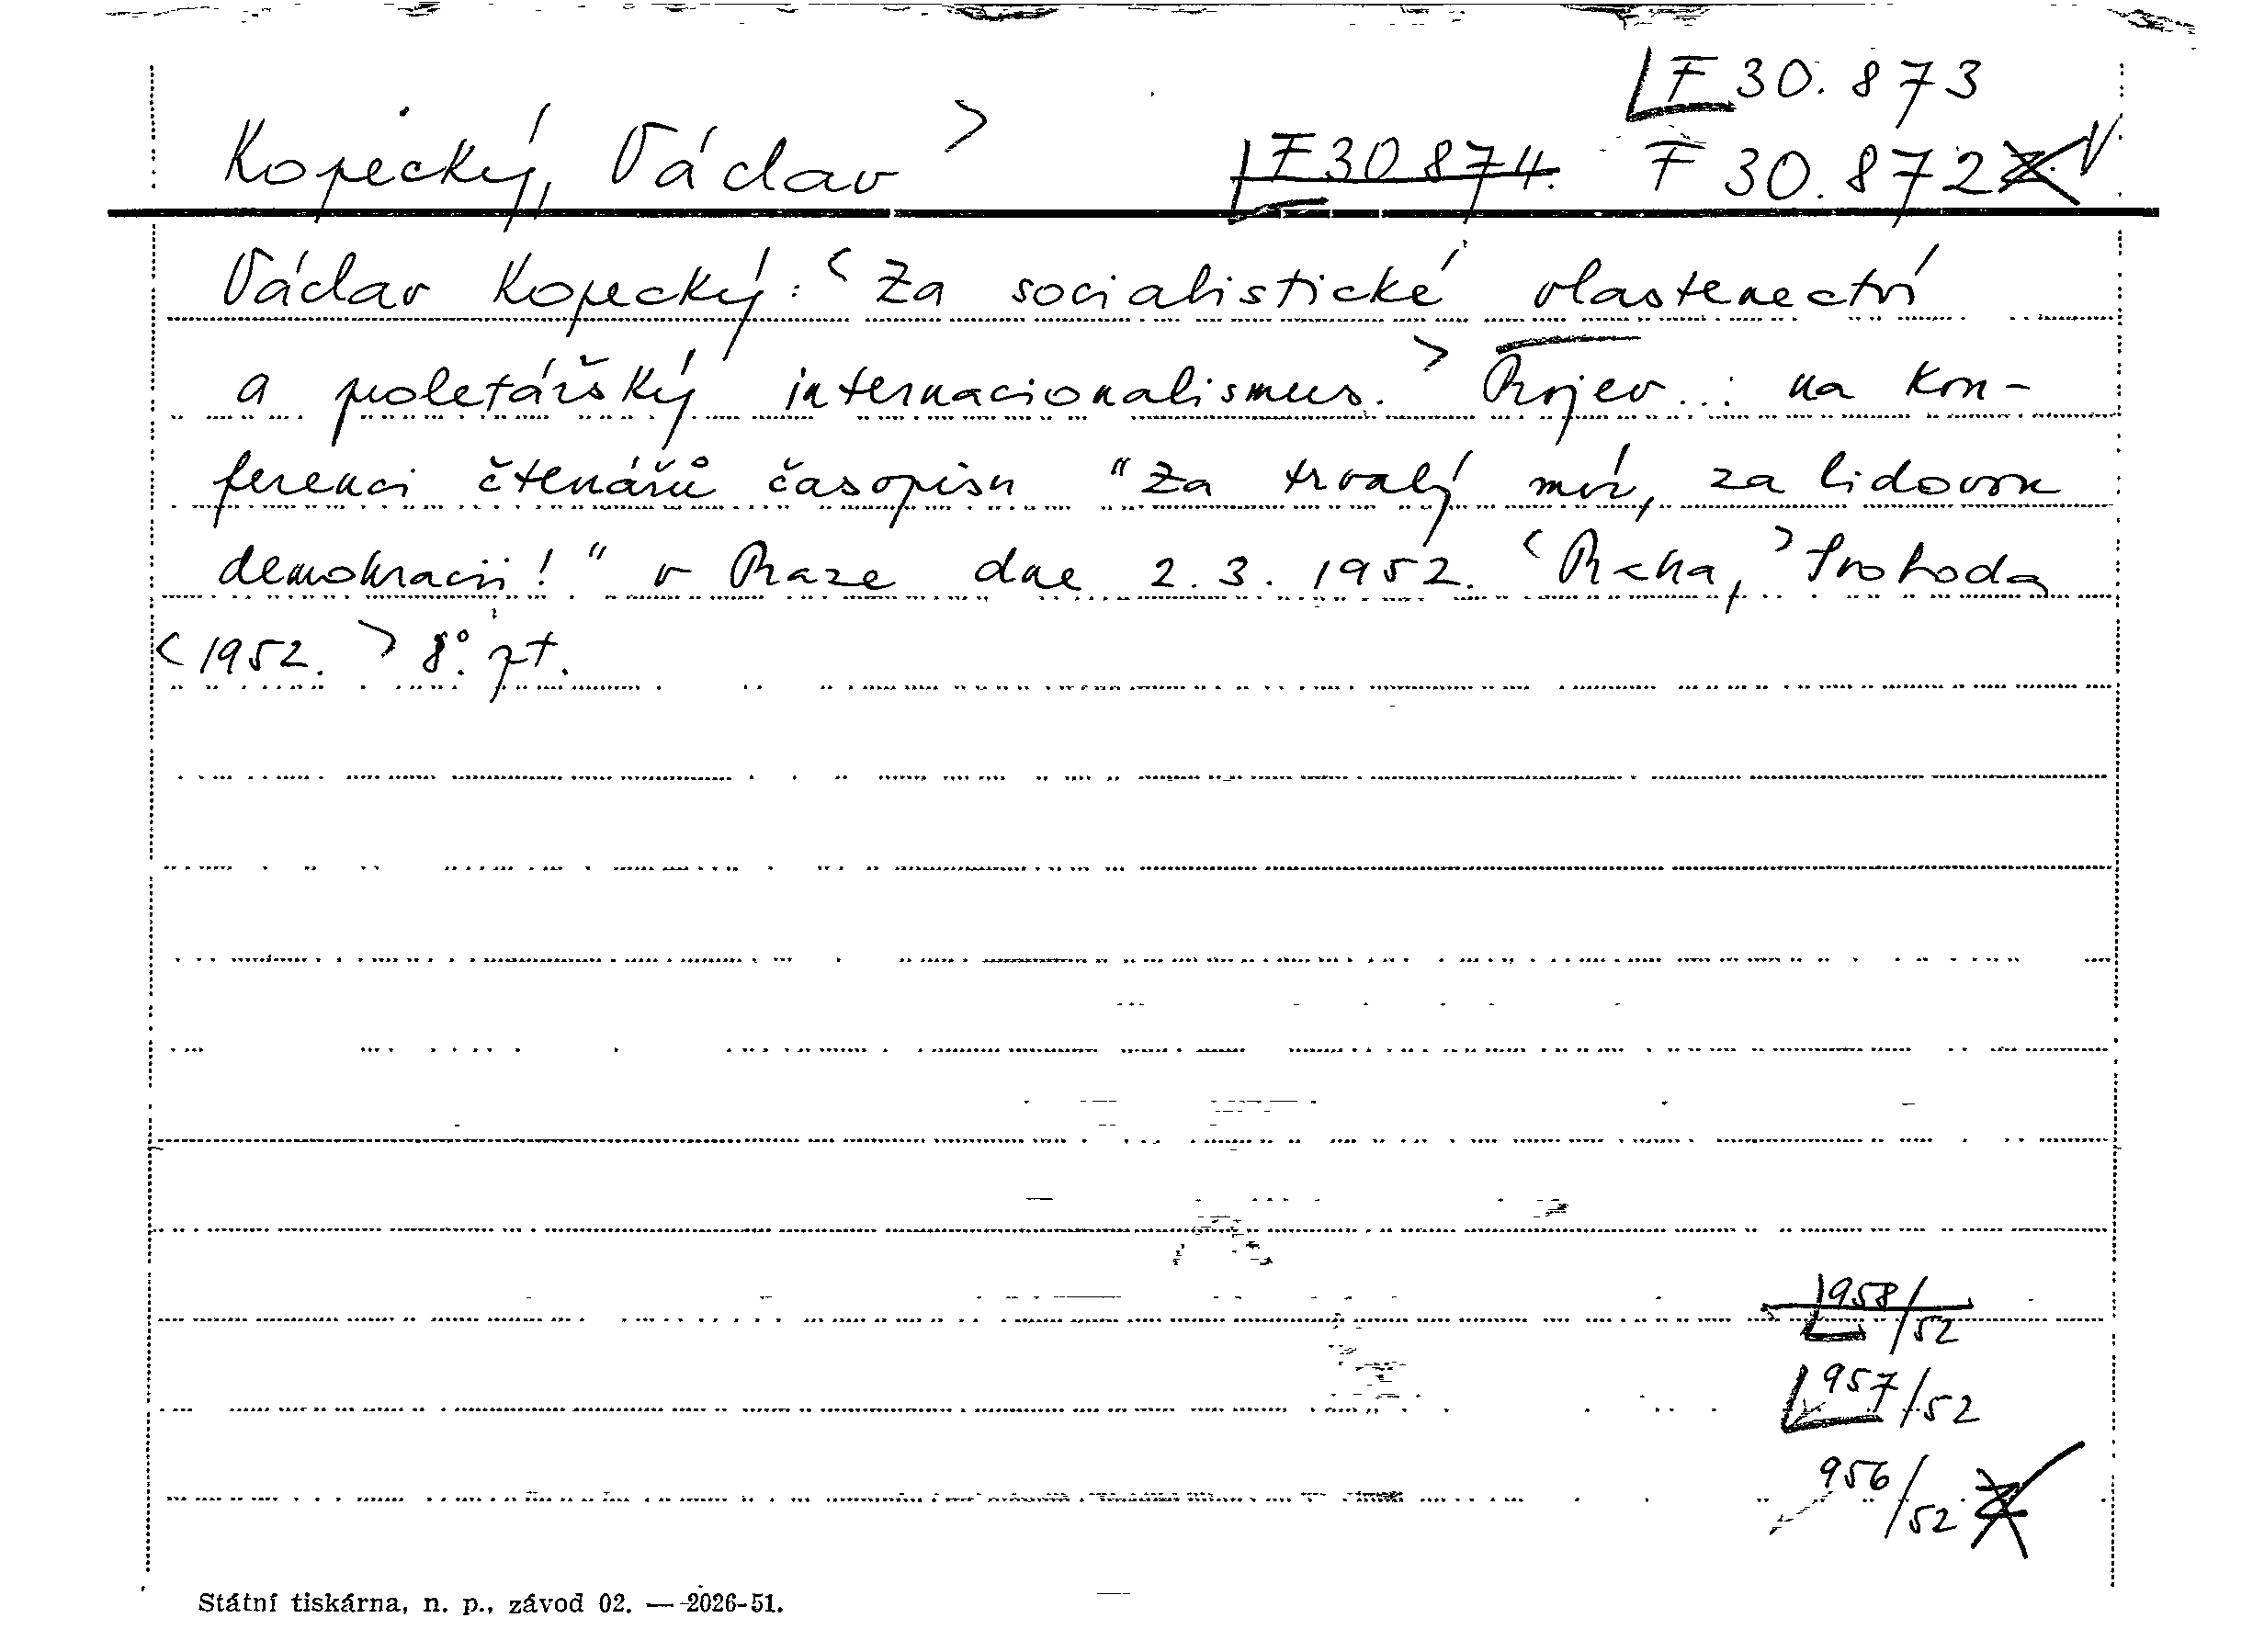 F 30.873
Kopecký, Václav > F 30 874. F 30.872
Václav Kopecký: < Za socialistické vlastenectví
a proletářský internacionalismus. > Projev..: na kon-
ferenci čtenářů časopisu "Za trvalý mír, za lidovou
demokracii!" v Praze dne 2.3.1952. < Praha, > Svoboda
< 1952. > 8°. pt.
958/52
957/52
956/52
Státní tiskárna, n. p., závod 02. — 2026-51.